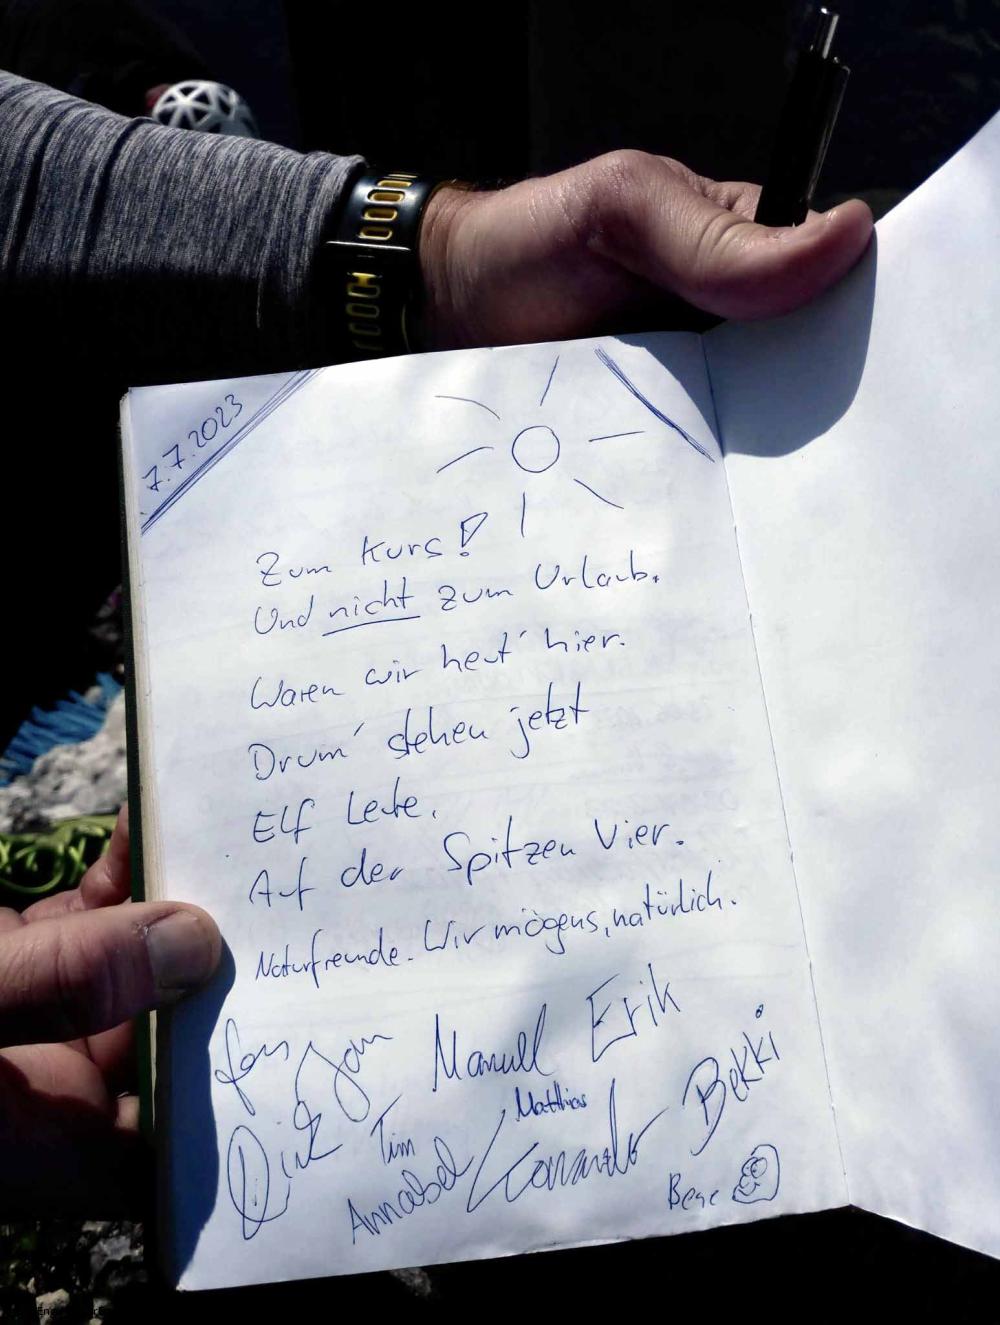 7.7.2023
Zum Kurs!
Und nicht zum Urlaub.
Waren wir heut' hier.
Drum' stehen jetzt
Elf Leute.
Auf der Spitzen Vier.
Naturfreunde. Wir mögens, natürlich.
Jan Manuel Erik
Dirk Tim Matthias Bekki
Annabel